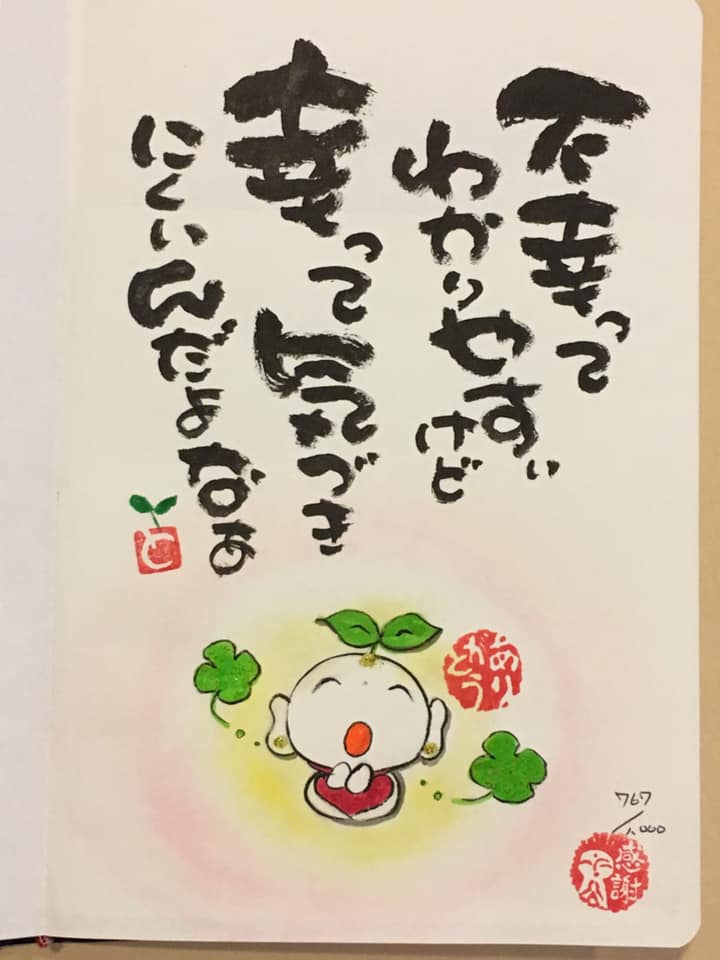 不幸って
わかりやすぃ
けど
幸って気づき
にくいんだよなぁ
と
ありがとう
767/1,000
感謝